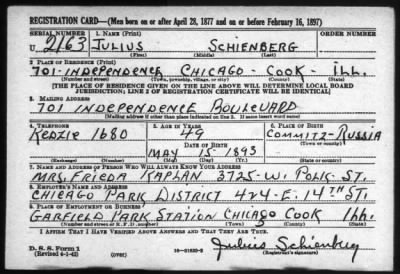 REGISTRATION CARD—(Men born on or after April 28, 1877 and on or before February 16, 1897)
SERIAL NUMBER 1. NAME (Print) ORDER NUMBER
U 2163 JULIUS SCHIENBERG
(First) (Middle) (Last)
2. PLACE OF RESIDENCE (Print)
701-INDEPENDENCE CHICAGO - COOK - ILL.
(Number and street) (Town, township, village, or city) (County) (State)
[THE PLACE OF RESIDENCE GIVEN ON THE LINE ABOVE WILL DETERMINE LOCAL BOARD
JURISDICTION; LINE 2 OF REGISTRATION CERTIFICATE WILL BE IDENTICAL]
3. MAILING ADDRESS
701 INDEPENDENCE BOULEVARD
[Mailing address if other than place indicated on line 2. If same insert word same]
4. TELEPHONE 5. AGE IN YEARS 6. PLACE OF BIRTH
KEDZIE 1680 49 COMMITZ-RUSSIA
DATE OF BIRTH (Town or county)
MAY 15- 1893
(Exchange) (Number) (Mo.) (Day) (Yr.) (State or country)
7. NAME AND ADDRESS OF PERSON WHO WILL ALWAYS KNOW YOUR ADDRESS
MRS. FRIEDA KAPLAN 3725-W. POLK-ST.
8. EMPLOYER'S NAME AND ADDRESS
CHICAGO PARK DISTRICT 424-E. 14TH ST.
9. PLACE OF EMPLOYMENT OR BUSINESS
GARFIELD PARK STATION CHICAGO COOK ILL.
(Number and street or R. F. D. number) (Town) (County) (State)
I AFFIRM THAT I HAVE VERIFIED ABOVE ANSWERS AND THAT THEY ARE TRUE.
D. S. S. Form 1
(Revised 4-1-42) (over) 16—21630-2 Julius Schienberg
(Registrant's signature)